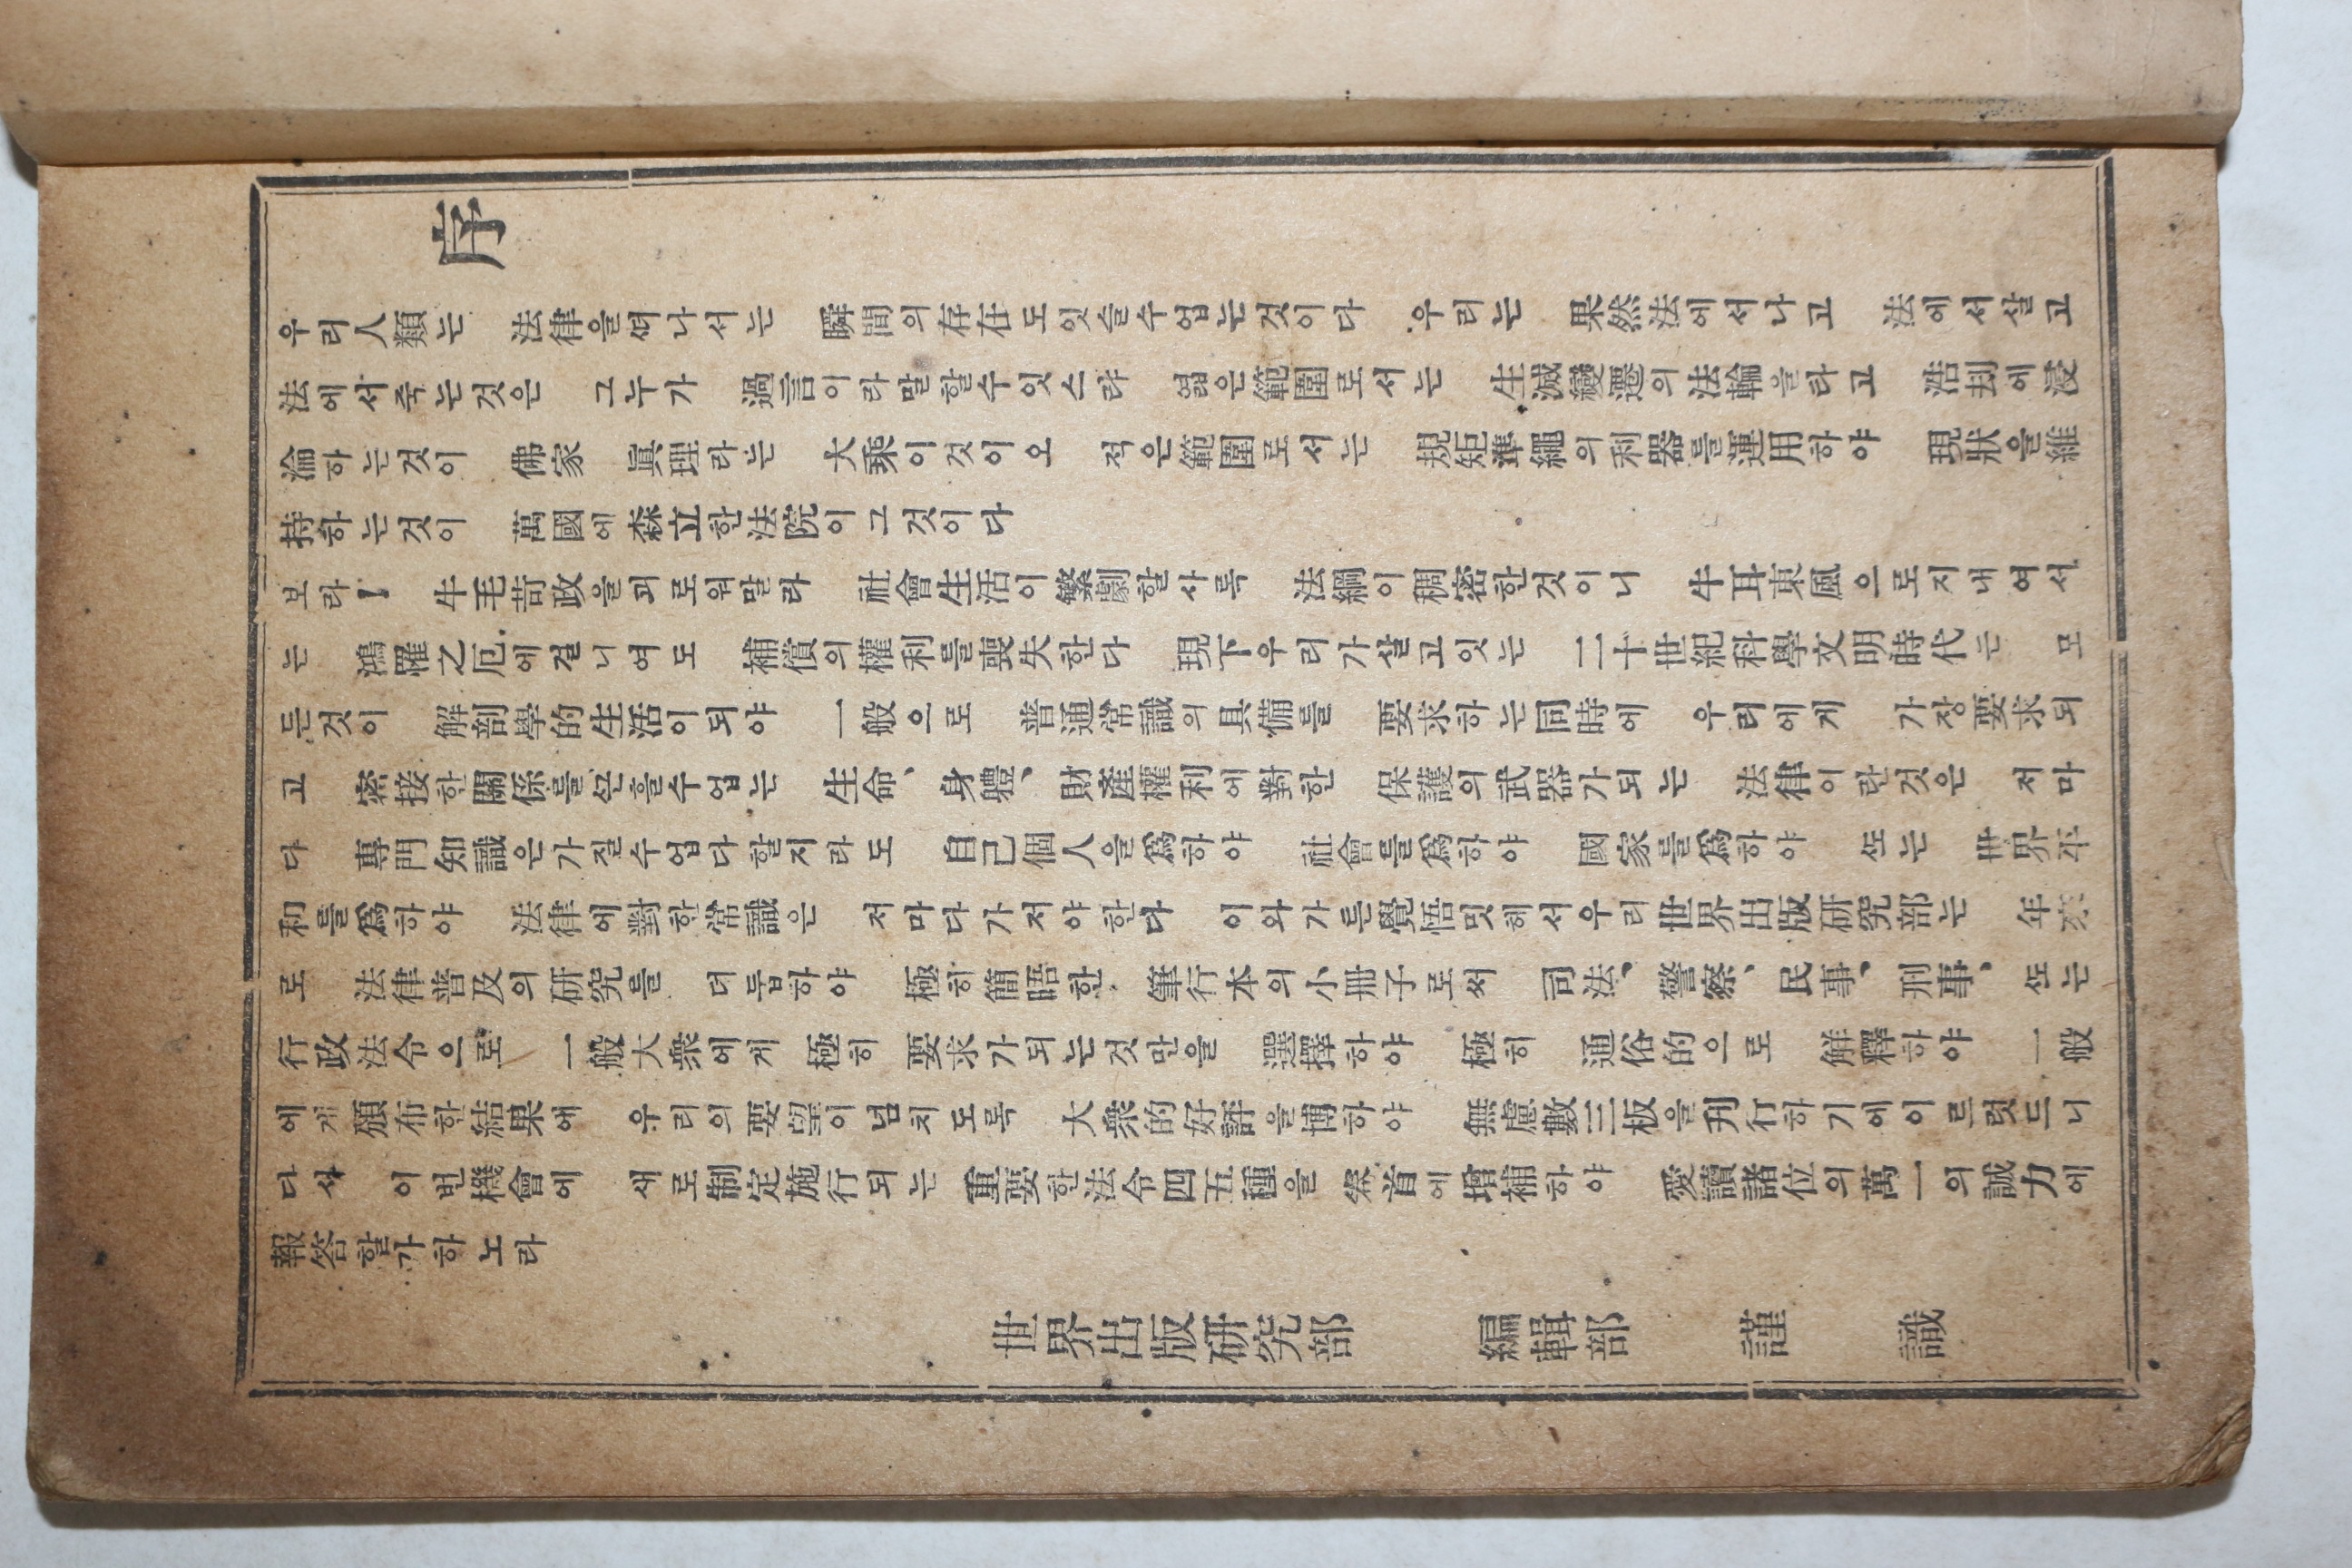 序
우리人類는 法律을ᄯᅥ나서는 瞬間의存在도잇슬수업는것이다 우리는 果然法에서나고 法에서살고
法에서죽는것은 그누가 過言이라말할수잇스랴 넓은範圍로서는 生滅變遷의法輪을타고 浩刧에浸
淪하는것이 佛家 眞理라는 大乘이것이오 적은範圍로서는 規矩準繩의利器를運用하야 現狀을維
持하는것이 萬國에森立한法院이그것이다
보라! 牛毛苛政을괴로워말라 社會生活이繁劇할사록 法網이稠密한것이니 牛耳東風으로지내여서
는 鴻罹之厄에걸니여도 補償의權利를喪失한다 現下우리가살고잇는 二十世紀科學文明時代는 모
든것이 解剖學的生活이되야 一般으로 普通常識의具備를 要求하는同時에 우리에게 가장要求되
고 密接한關係를ᄭᅳᆫ흘수업는 生命、身體、財產權利에對한 保護의武器가되는 法律이란것은 저마
다 專門知識은가질수업다할지라도 自己個人을爲하야 社會를爲하야 國家를爲하야 ᄯᅩ는 世界平
和를爲하야 法律에對한常識은 저마다가저야한다 이와가튼覺悟밋헤서우리世界出版硏究部는 年來
로 法律普及의硏究를 더듭하야 極히簡晤한 筆行本의小冊子로써 司法、警察、民事、刑事、ᄯᅩ는
行政法令으로 一般大衆에게 極히 要求가되는것만을 選擇하야 極히 通俗的으로 解釋하야 一般
에게頒布한結果에 우리의要望이넘치도록 大衆的好評을博하야 無慮數三板을刋行하기에이르럿드니
다시 이번機會에 새로制定施行되는 重要한法令四五種을 卷首에增補하야 愛讀諸位의萬一의誠力에
報答할가하노라
世界出版硏究部 編輯部 謹 識